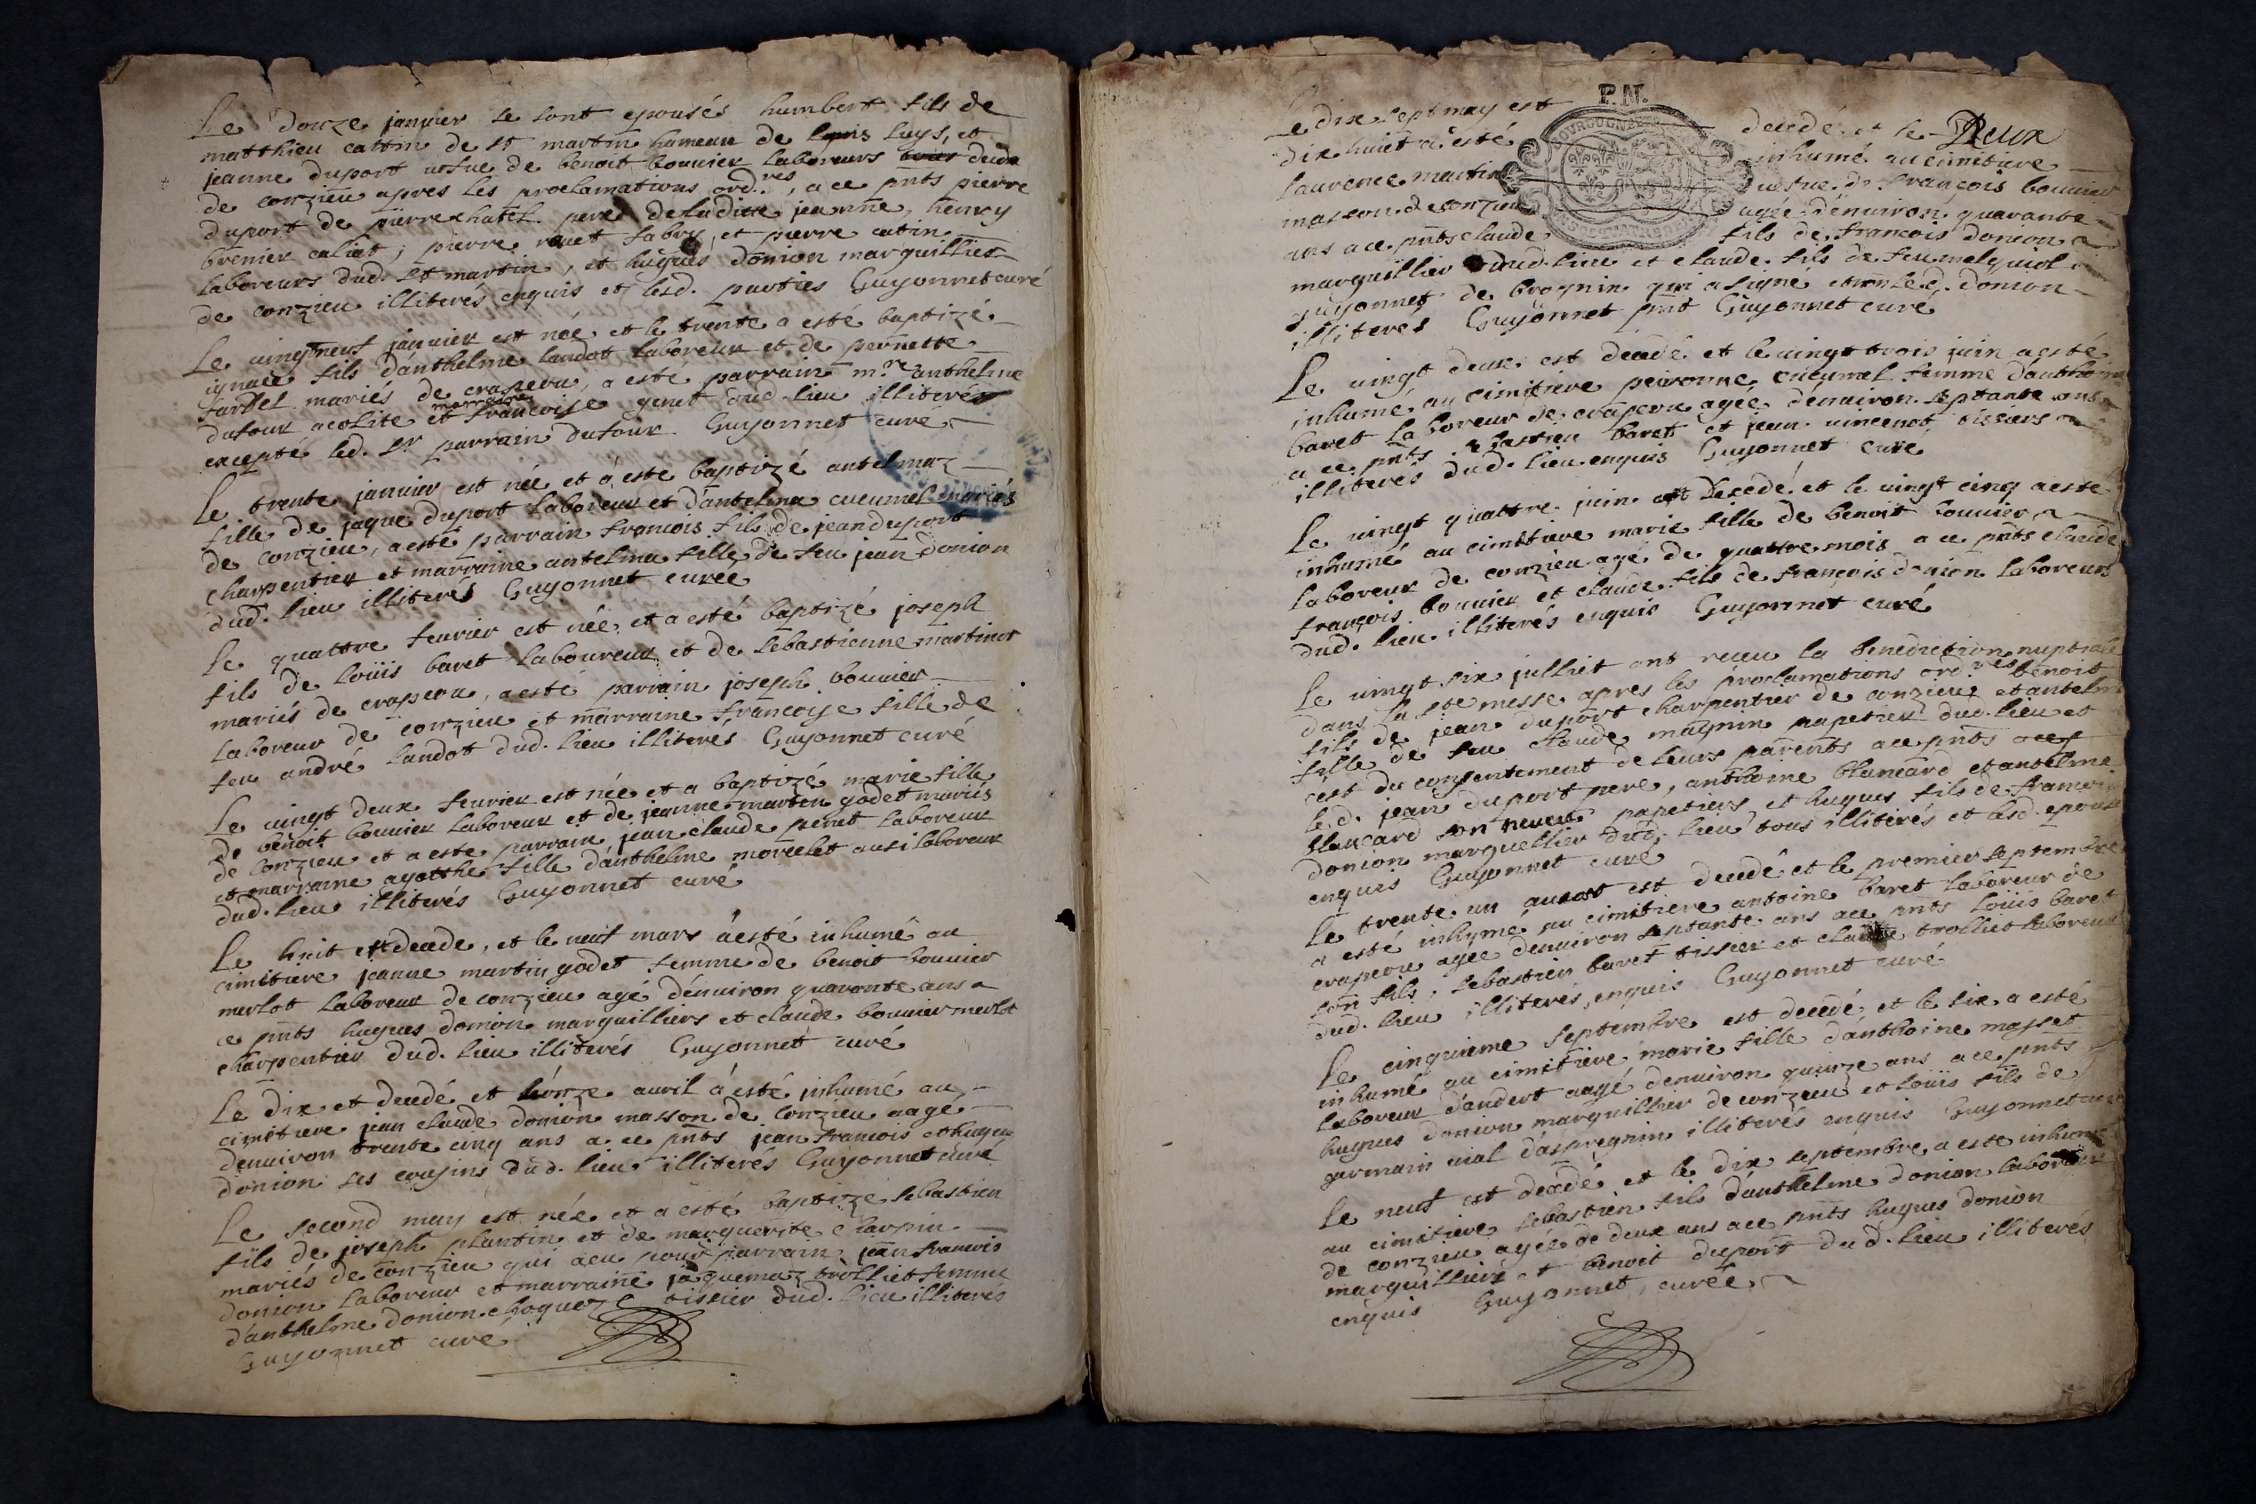 Le douze janvier se sont epousés humbert fils de
matthieu cattin de st martin hameau de luys, et
jeanne duport vefue de benoit bouvier laboreurs deux
de conzieu apres les proclamations ord.res, a ce pnts pierre
duport de pierre chatel pere de ladite jeanne, henry
brenier caliat, pierre fabry, et pierre catin
laboreurs dud. st martin, et hugues donion marguillier
de conzieu illiterés enquis et lesd. parties Guyonnet curé
Le vingtneuf janvier est née et le trente a esté baptizé
ignace fils d'anthelme landot laboreur et de pernette
fardel mariés de crapeou, a esté parrain m.re anthelme
dufour acolite et marraine francoise genet dud lieu illiterés
excepté led. Sr parrain dufour Guyonnet curé
Le trente janvier est née et à este baptizé antelmaz
fille de jaque duport laboreur et d'antelma cucumel mariés
de conzieu, a esté parrain francois fils de jean duport
charpentier et marraine antelma fille de feu jean donion
dud. lieu illiterés Guyonnet curée
Le quattre feurier est née et a esté baptizé joseph
fils de loüis baret laboureur et de sebastienne martinot
mariés de crapeou, a esté parrain joseph bouvier
laboreur de conzieu et marraine francoise fille de
feu andré landot dud. lieu illiterés Guyonnet curé
Le vingt deux feurier est née et a baptizé marie fille
de benoit bouvier laboreur et de jeanne martin godet mariés
de conzieu et a este parrain jean claude penet laboreur
et marraine agatthe fille d'anthelme morcelet ausi laboreur
dud. lieu illiterés Guyonnet curé
Le huit est decede, et le neuf mars a esté inhumé au
cimitiere jeanne martin godet femme de benoit bouvier
merlot laboreur de conzieu agé d'enuiron quarante ans a
ce pnts hugues donion marguilliers et claude bouvier merlot
charpentier dud. lieu illiterés Guyonnet curé
Le dix et decedé et l'onze auril à esté inhumé au
cimitiere jean claude donion masson de conzieu aagé
denuiron trente cinq ans a ce pnts jean francois et hugues
donion ses cousins dud. lieu illiterés Guyonnet curé
Le second may est née et a esté baptizé sebastien
fils de joseph plantin et de marguerite charpin
mariés de conzieu qui a eu pour parrain jean francois
donion laboreur et marraine jaquemaz trolliet femme
d'anthelme donion choquez tissier dud. lieu illiterés
Guyonnet curé
P.N.
Deux
Le dix sept may est decedé et le
dix huict a esté inhumé au cimitiere
laurence martin vefue de françois bouvier
masson de conzieu agée d'enuiron quarante
ans a ce pnts claude fils de francois donion
marguillier dud. lieu et claude fils de feu melquiol
guyonnet de brognin qui a signé et non led. donion
illiteres Guyonnet pnt Guyonnet curé
Le vingt deux est decedé et le vingt trois juin a esté
inhumé au cimitiere peironne cucumel femme d'anthoine
baret laboreur de crapeou agée denuiron septante ans
a ce pnts sebastien baret et jean vincent tissiers
illiterés dud. lieu enquis Guyonnet curé
Le vingt quattre juin est decedé et le vingt cinq a esté
inhumé au cimitiere marie fille de benoit bouvier
laboreur de conzieu agé de quattre mois a ce pnts claude
françois bouvier et claude fils de françois donion laboreurs
dud. lieu illiterés enquis Guyonnet curé
Le vingt six julliet ont receu la benediction nuptiale
dans la ste messe apres les proclamations ord.res benoit
fils de jean duport charpentier de conzieu et antelme
fille de feu claude magnin papetier dud. lieu et
c'est du consentement de leurs parents a ce pnts
led. jean duport pere, anthoine blancard et antelme
blancard son neveu papetiers et hugues fils de francois
donion marguellier dud. lieu tous illiterés et lesd. epouse
enquis Guyonnet curé
Le trente un aoust est decedé et le premier septembre
a esté inhumé au cimitiere antoine baret laboreur de
crapeou agée denuiron septante ans a ce pnts loüis baret
son fils, sebastien baret tissier et claude trolliet laboreur
dud. lieu illiterés, enquis Guyonnet curé
Le cinquieme septembre est decedé et le six a esté
inhumé au cimitiere marie fille d'anthoine masset
laboreur d'andert aagé denuiron quinze ans a ce pnts
hugues donion marguillier de conzieu et loüis fils de
germain vial d'aspregnin illiterés enquis Guyonnet curé
Le neuf est decedé et le dix septembre a este inhumé
au cimitiere sebastien fils d'anthelme donion laboreur
de conzieu agée de deux ans a ce pnts hugues donion
marguilliers et benoit duport dud. lieu illiterés
enquis Guyonnet, curée